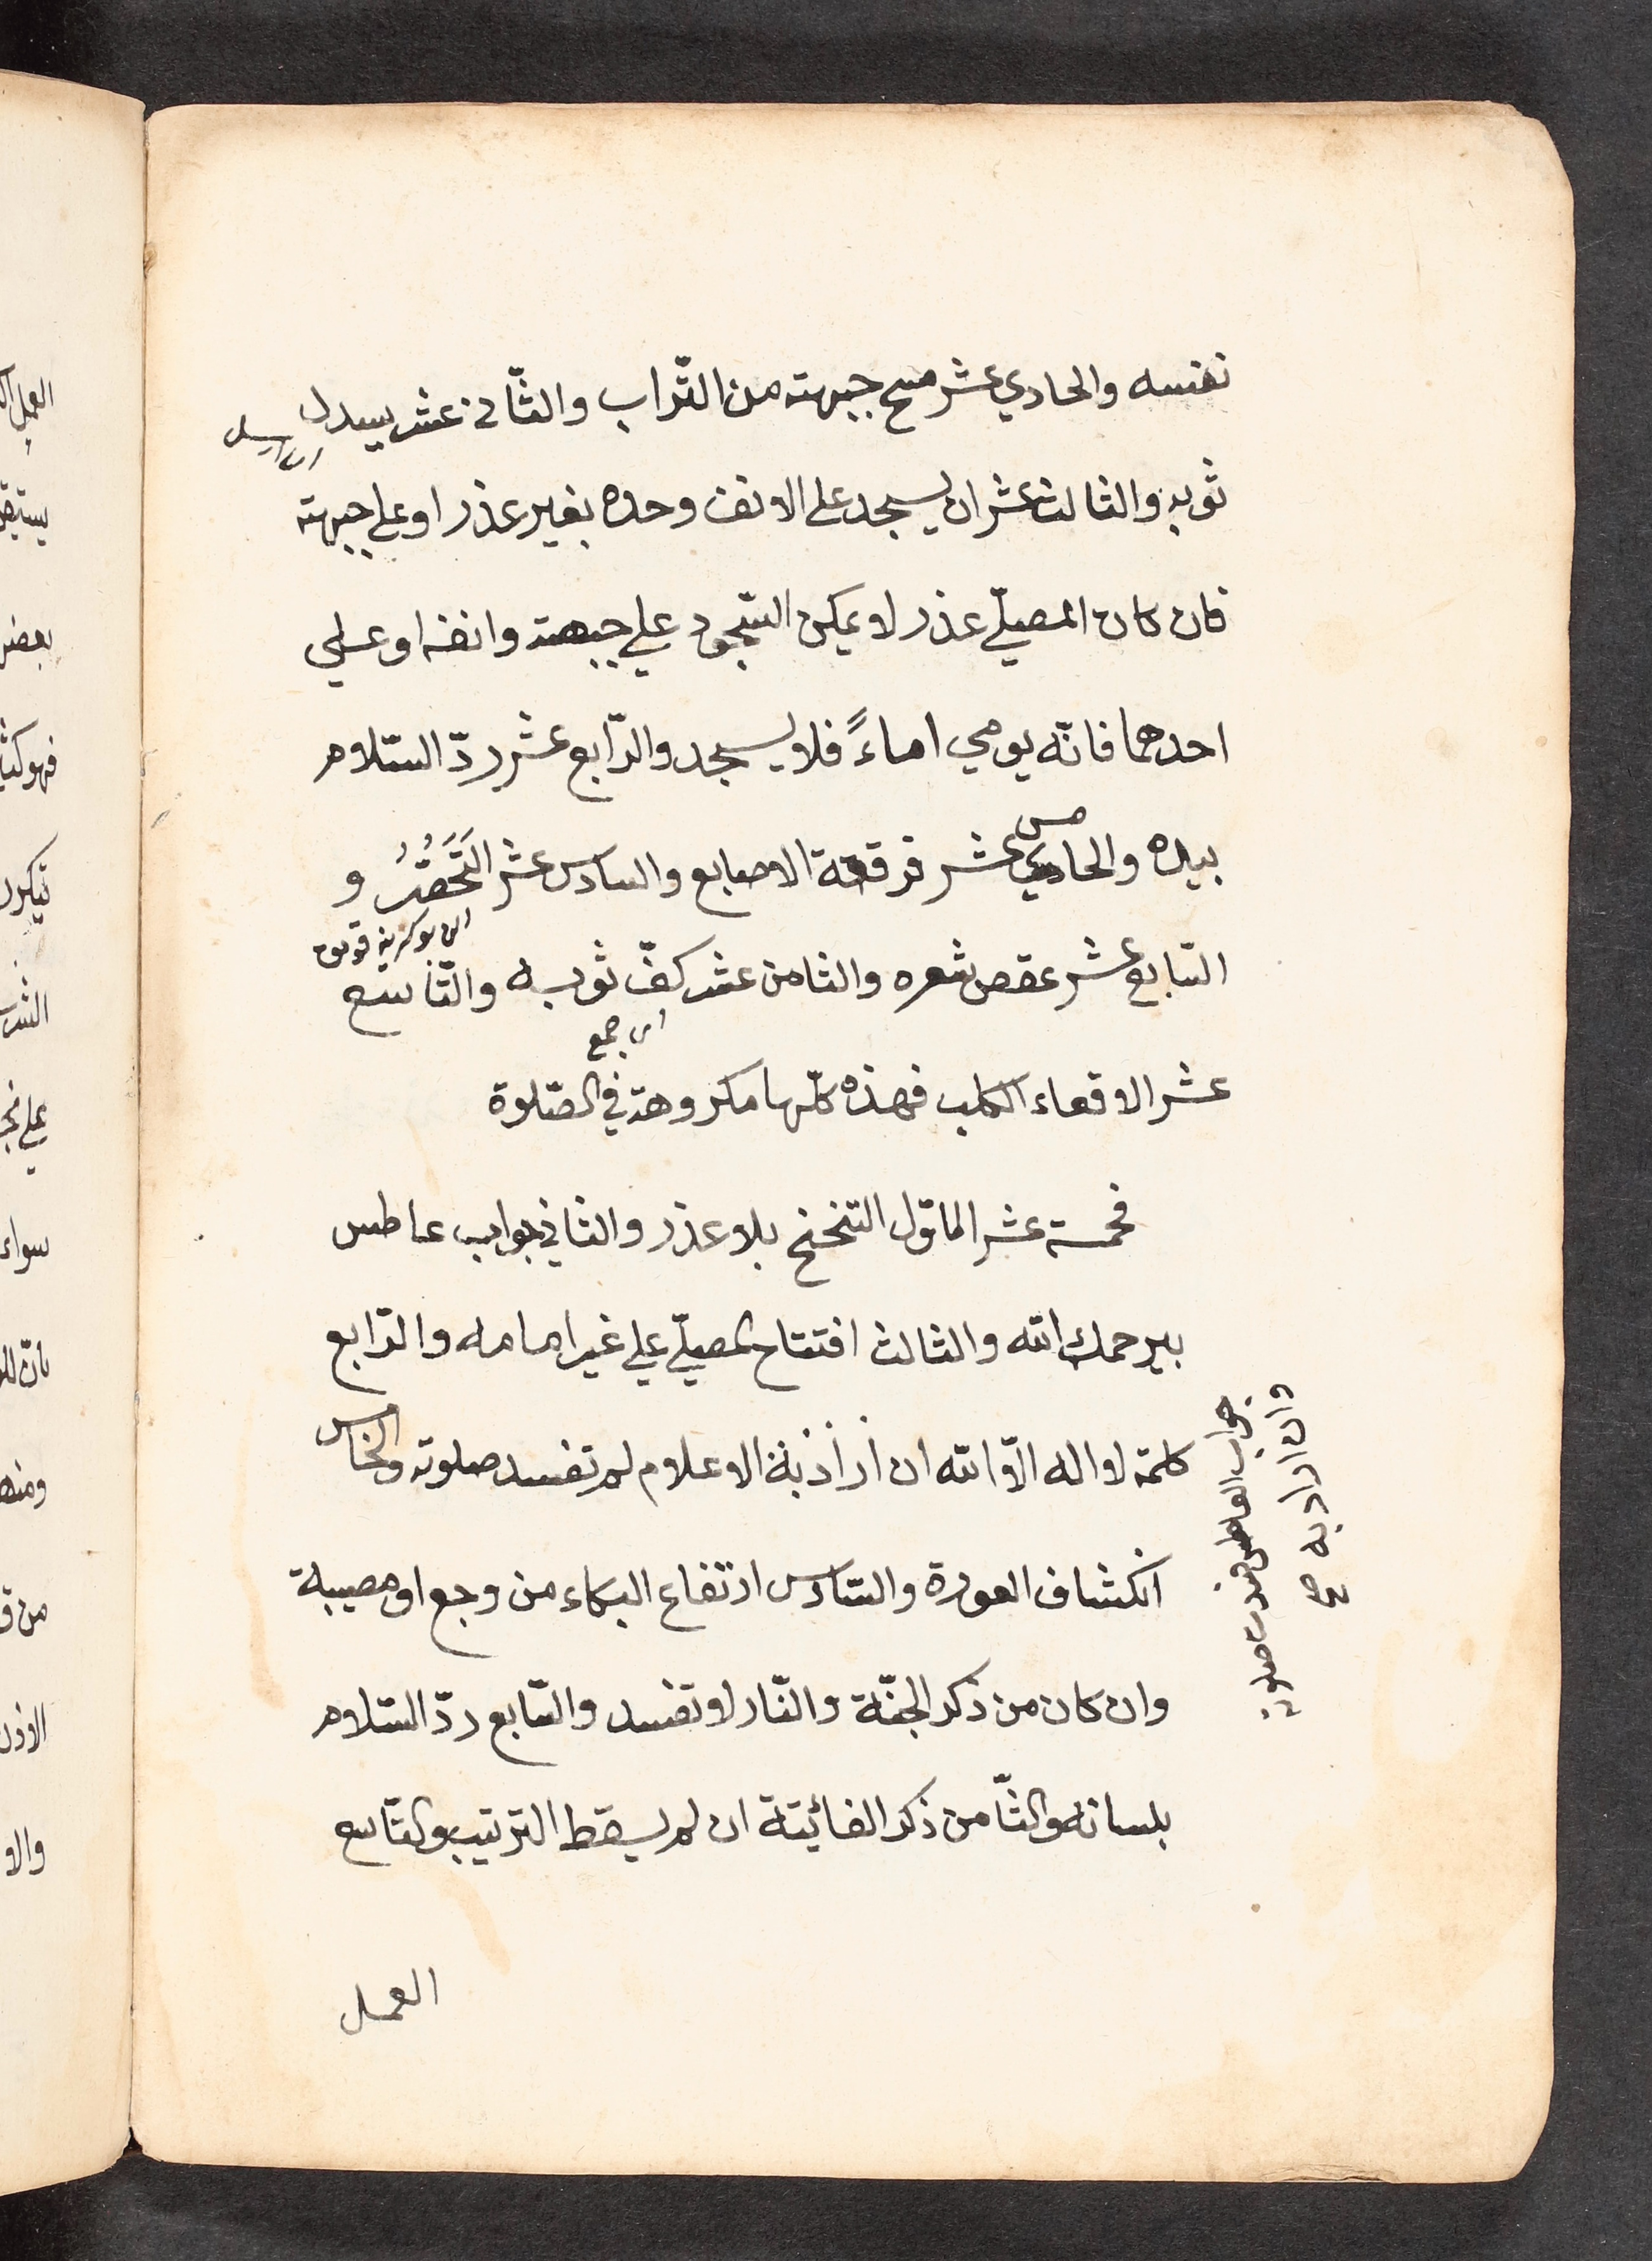 نفسه والحادي عشر مسح جبهته من التّراب والثّاني عشر يسدل
اي ارسل
ثوبه والثالث عشر ان يسجد على الانف وحده بغير عذر او على جبهته
فان كان المصلّي عذر لا يمكن السّجود علي جبهته وانفه او علي
احدهما فانّه يومي اماءً فلا يسجد والرّابع عشر ردّ السّلام
بيده والحادي عشر فرقعة الاصابع والسادس عشر التَخَصُّرُ و
مس
السّابع عشر عقص شعره والثامن عشر كفّ ثوبه والتّاسع
اي جمع
عشر الاقعاء الكلب فهذه كلّها مكروهة في الصّلوة
فخمسة عشر الماوّل التنحنح بلا عذر والثاني جواب عاطس
بيرحمك الله والثالث افتتاح المصلّي علي غير امامه والرّابع
كلمة لا اله الّا الله ان اراد به الاعلام لم تفسد صلوته والخامس
انكشاف العورة والسّادس ارتفاع البكاء من وجع او مصيبة
وان كان من ذكر الجنّة والنّار لا تفسد والسّابع ردّ السّلام
بلسانه والثّامن ذكر الفائيتة ان لم يسقط الترتيب والتّاسع
العمل
وان اراد به
جواب العاطس فسدت صلوته